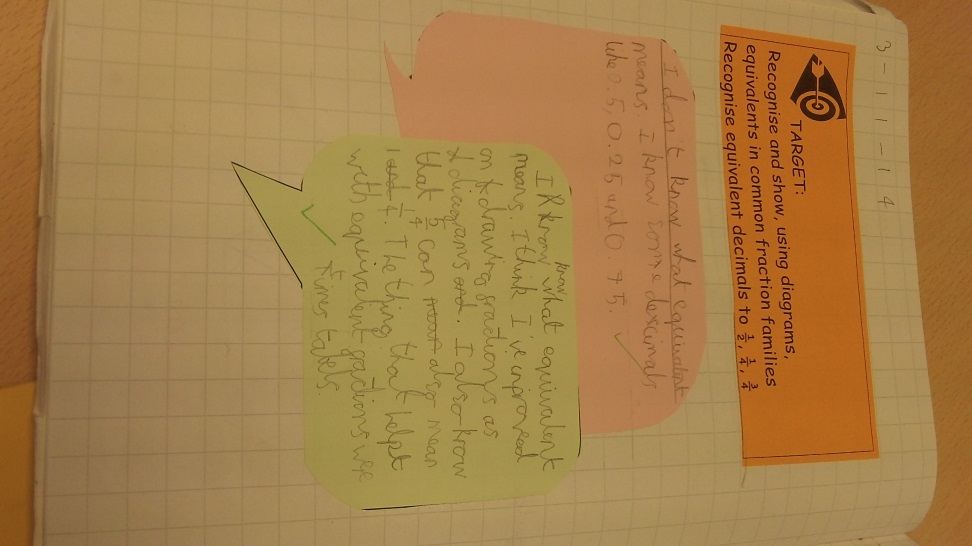 3-11-14
TARGET:
Recognise and show, using diagrams,
equivalents in common fraction families
Recognise equivalent decimals to 1/2, 1/4, 3/4
I don't know what equivalent
means. I know some descimals
like 0.5, 0.25 and 0.75.
know
I know what equivalent
means. I think I've improved
on drawing fractions as
diagrams and. I also know
that can also mean
The thing that helpt
with equivalent fractions were
times tabels.